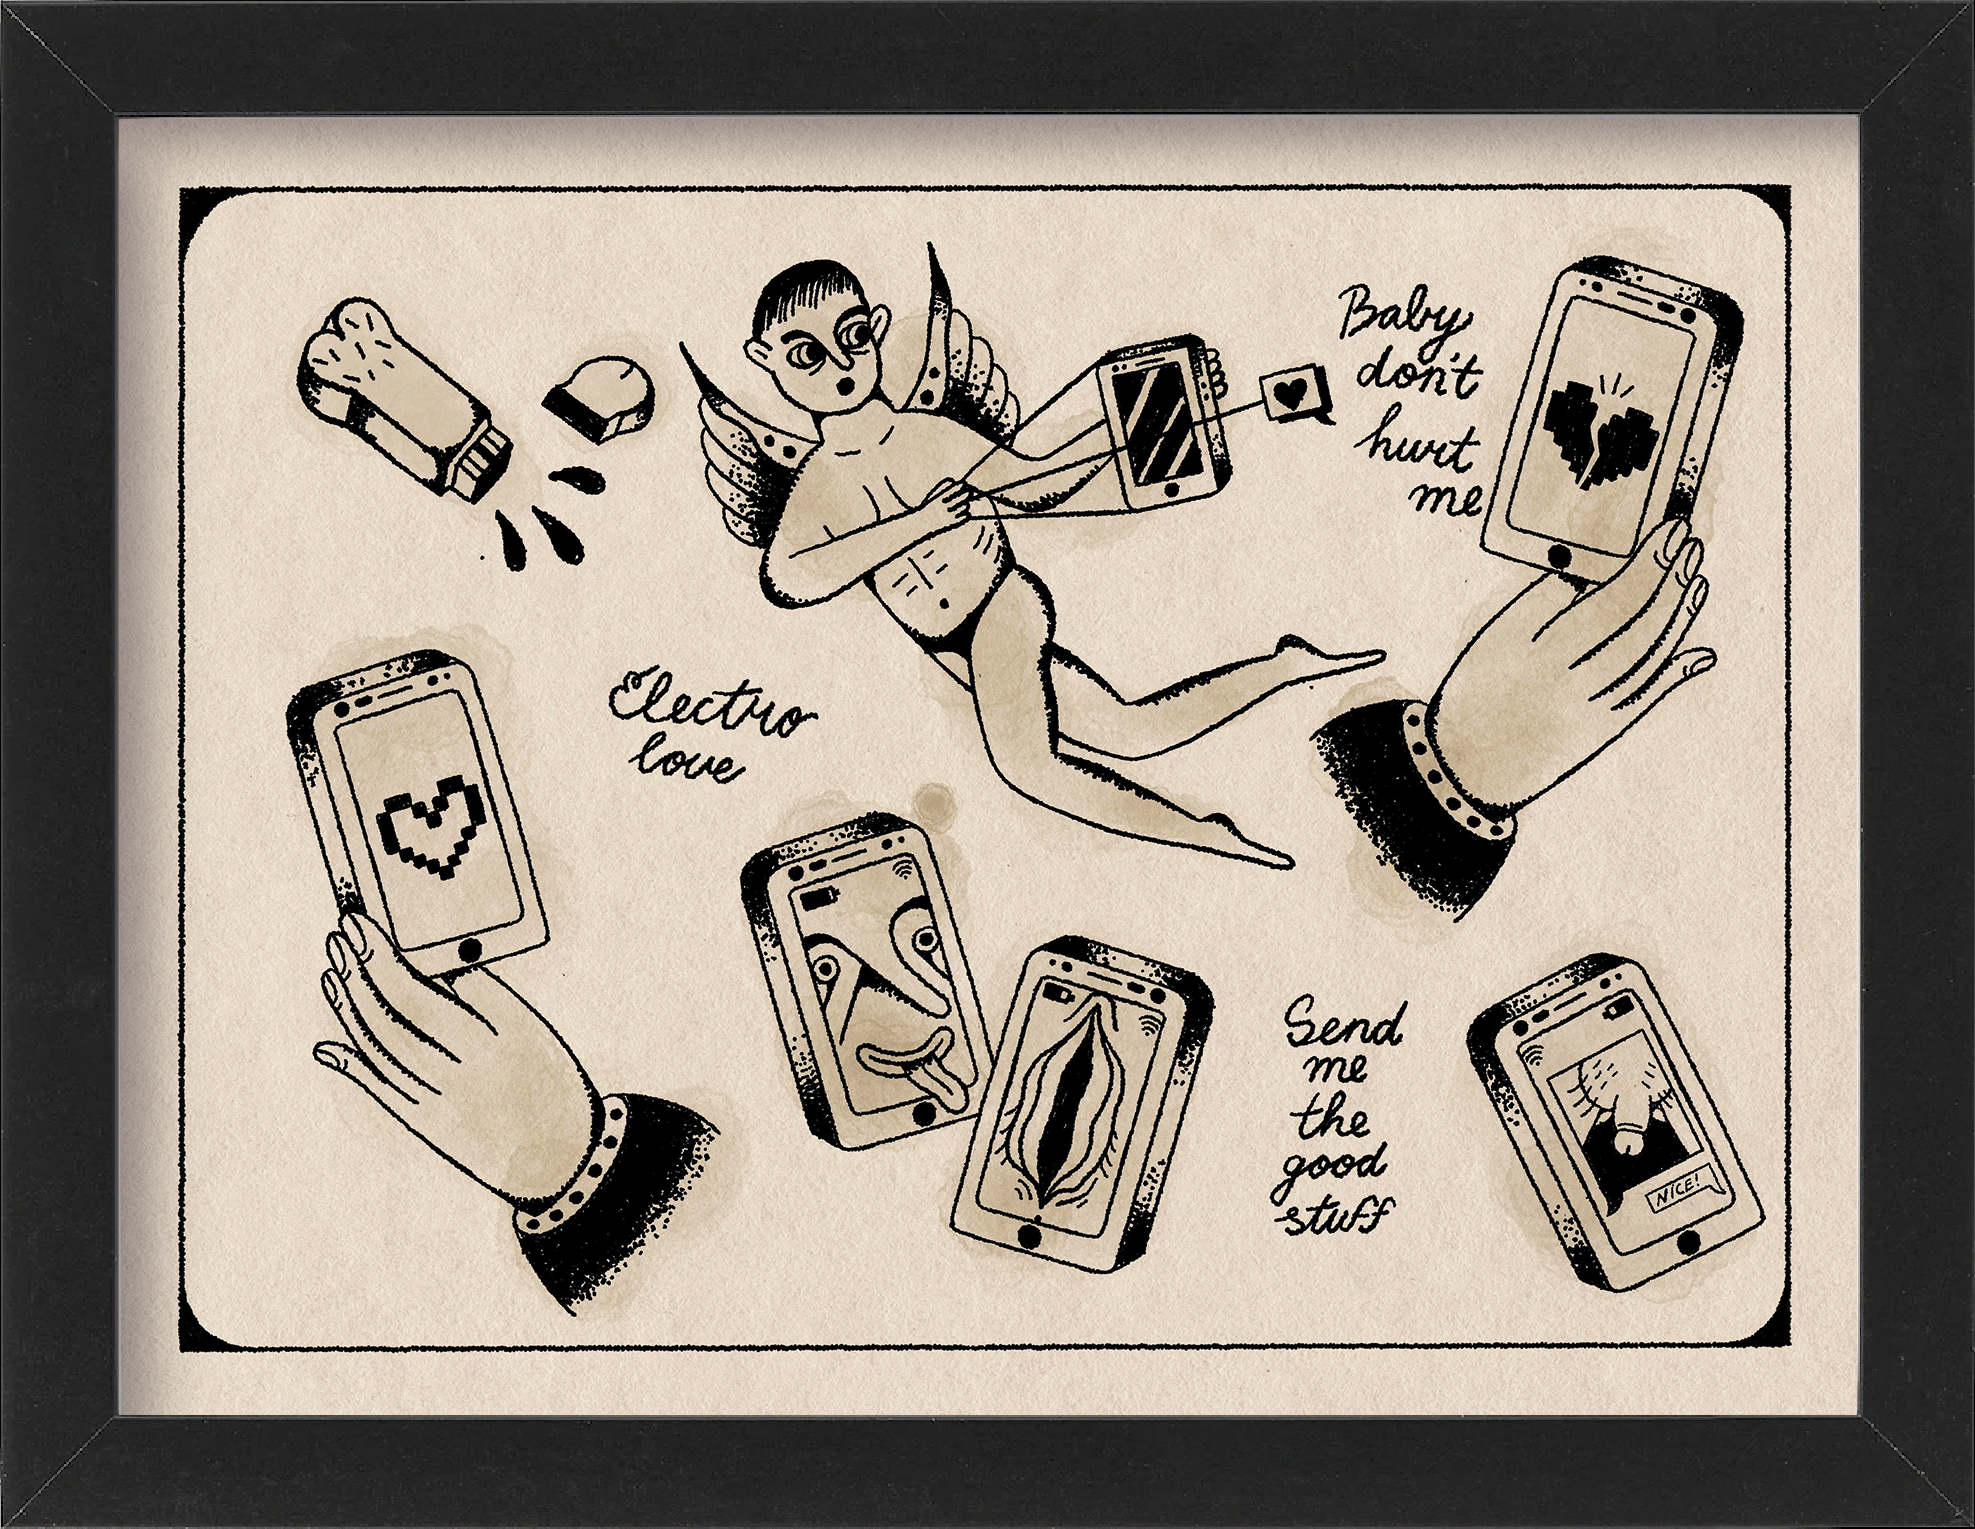 Baby
don't
hurt
me
Electro
love
Send
me
the
good
stuff
NICE!